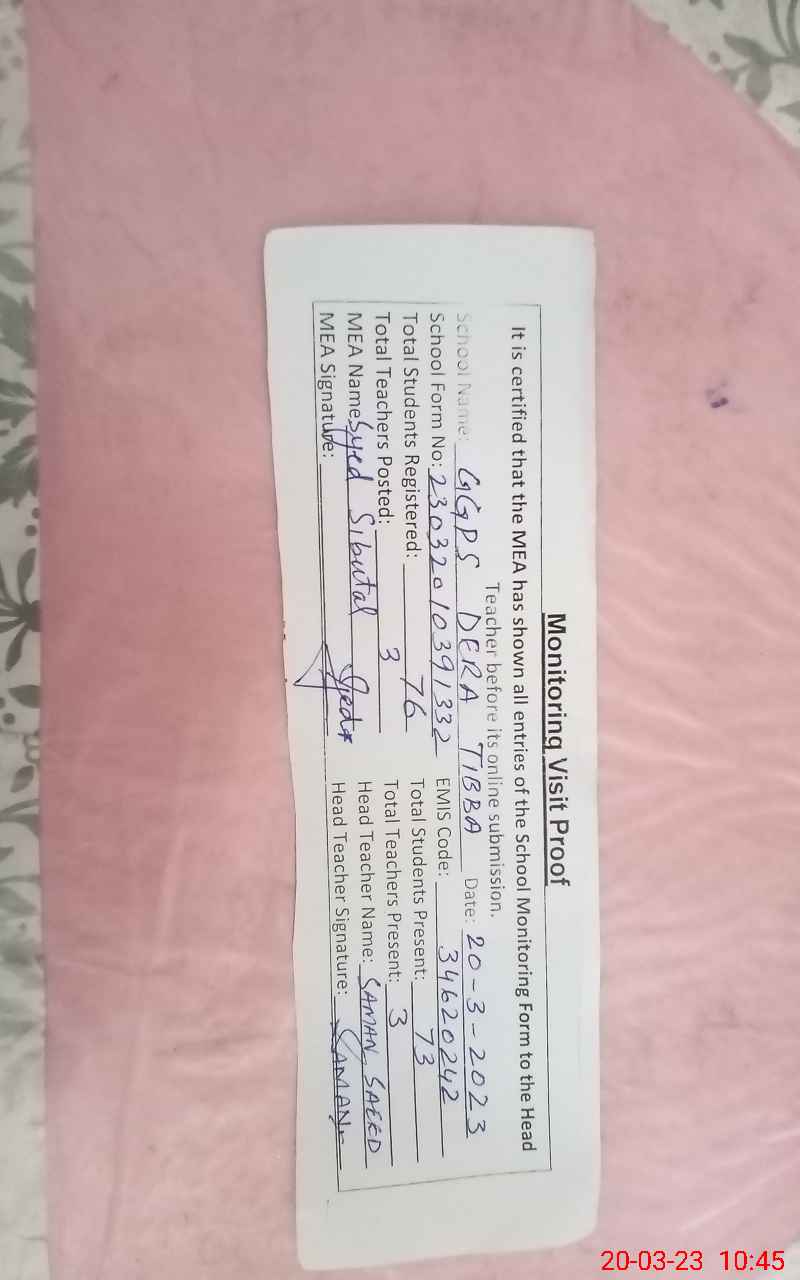 Monitoring Visit Proof
It is certified that the MEA has shown all entries of the School Monitoring Form to the Head
Teacher before its online submission.
School Name: GGPS DERA TIBBA Date: 20-3-2023
School Form No: 23032010391332 EMIS Code: 34620242
Total Students Registered: 76 Total Students Present: 73
Total Teachers Posted: 3 Total Teachers Present: 3
MEA Name: Syed Head Teacher Name: SAMAN SAEED
MEA Signature: Head Teacher Signature: SAMAN
20-03-23 10:45